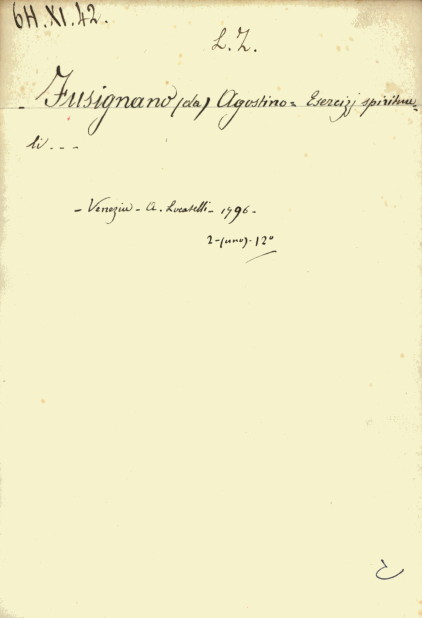 6H.XI.42.
L.Z.
- Fusignano (da) Agostino = Esercizj spiritua-
li - - -
- Venezia - A. Locatelli - 1796 -
2-(uno)-12°